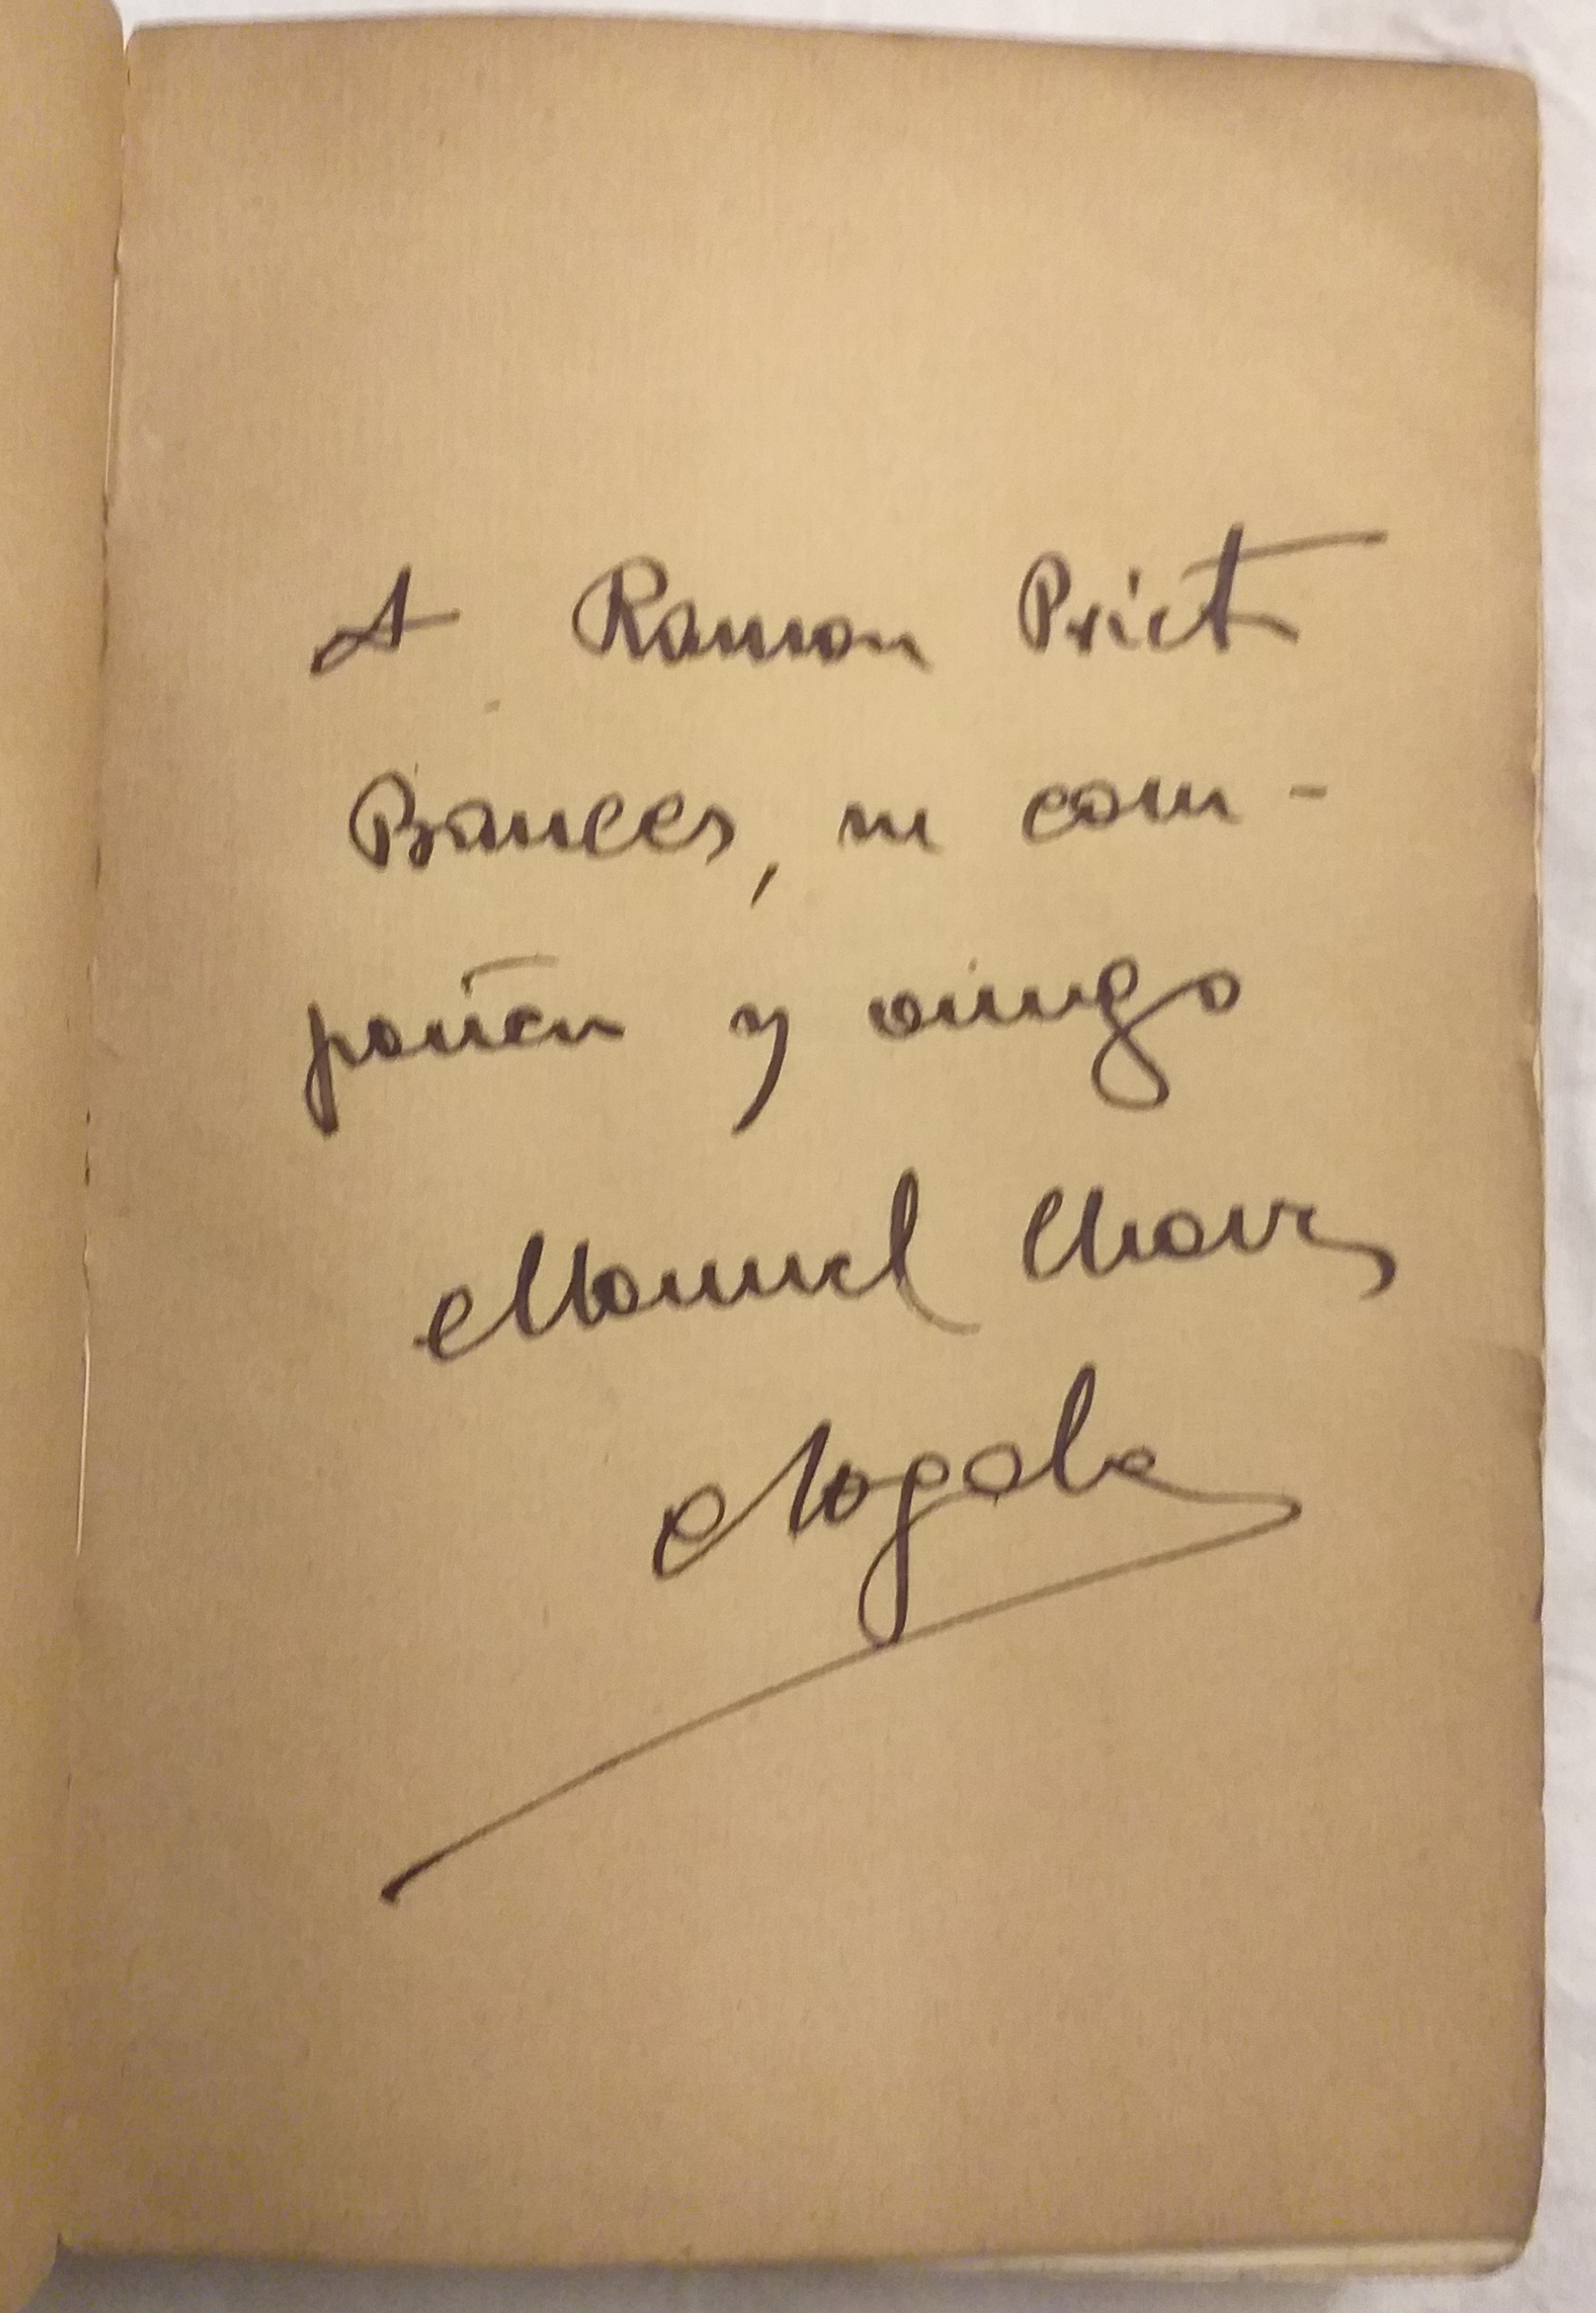 A Ramon Prieto
Bances, su com-
pañero y amigo
Manuel Chaves
Nogales